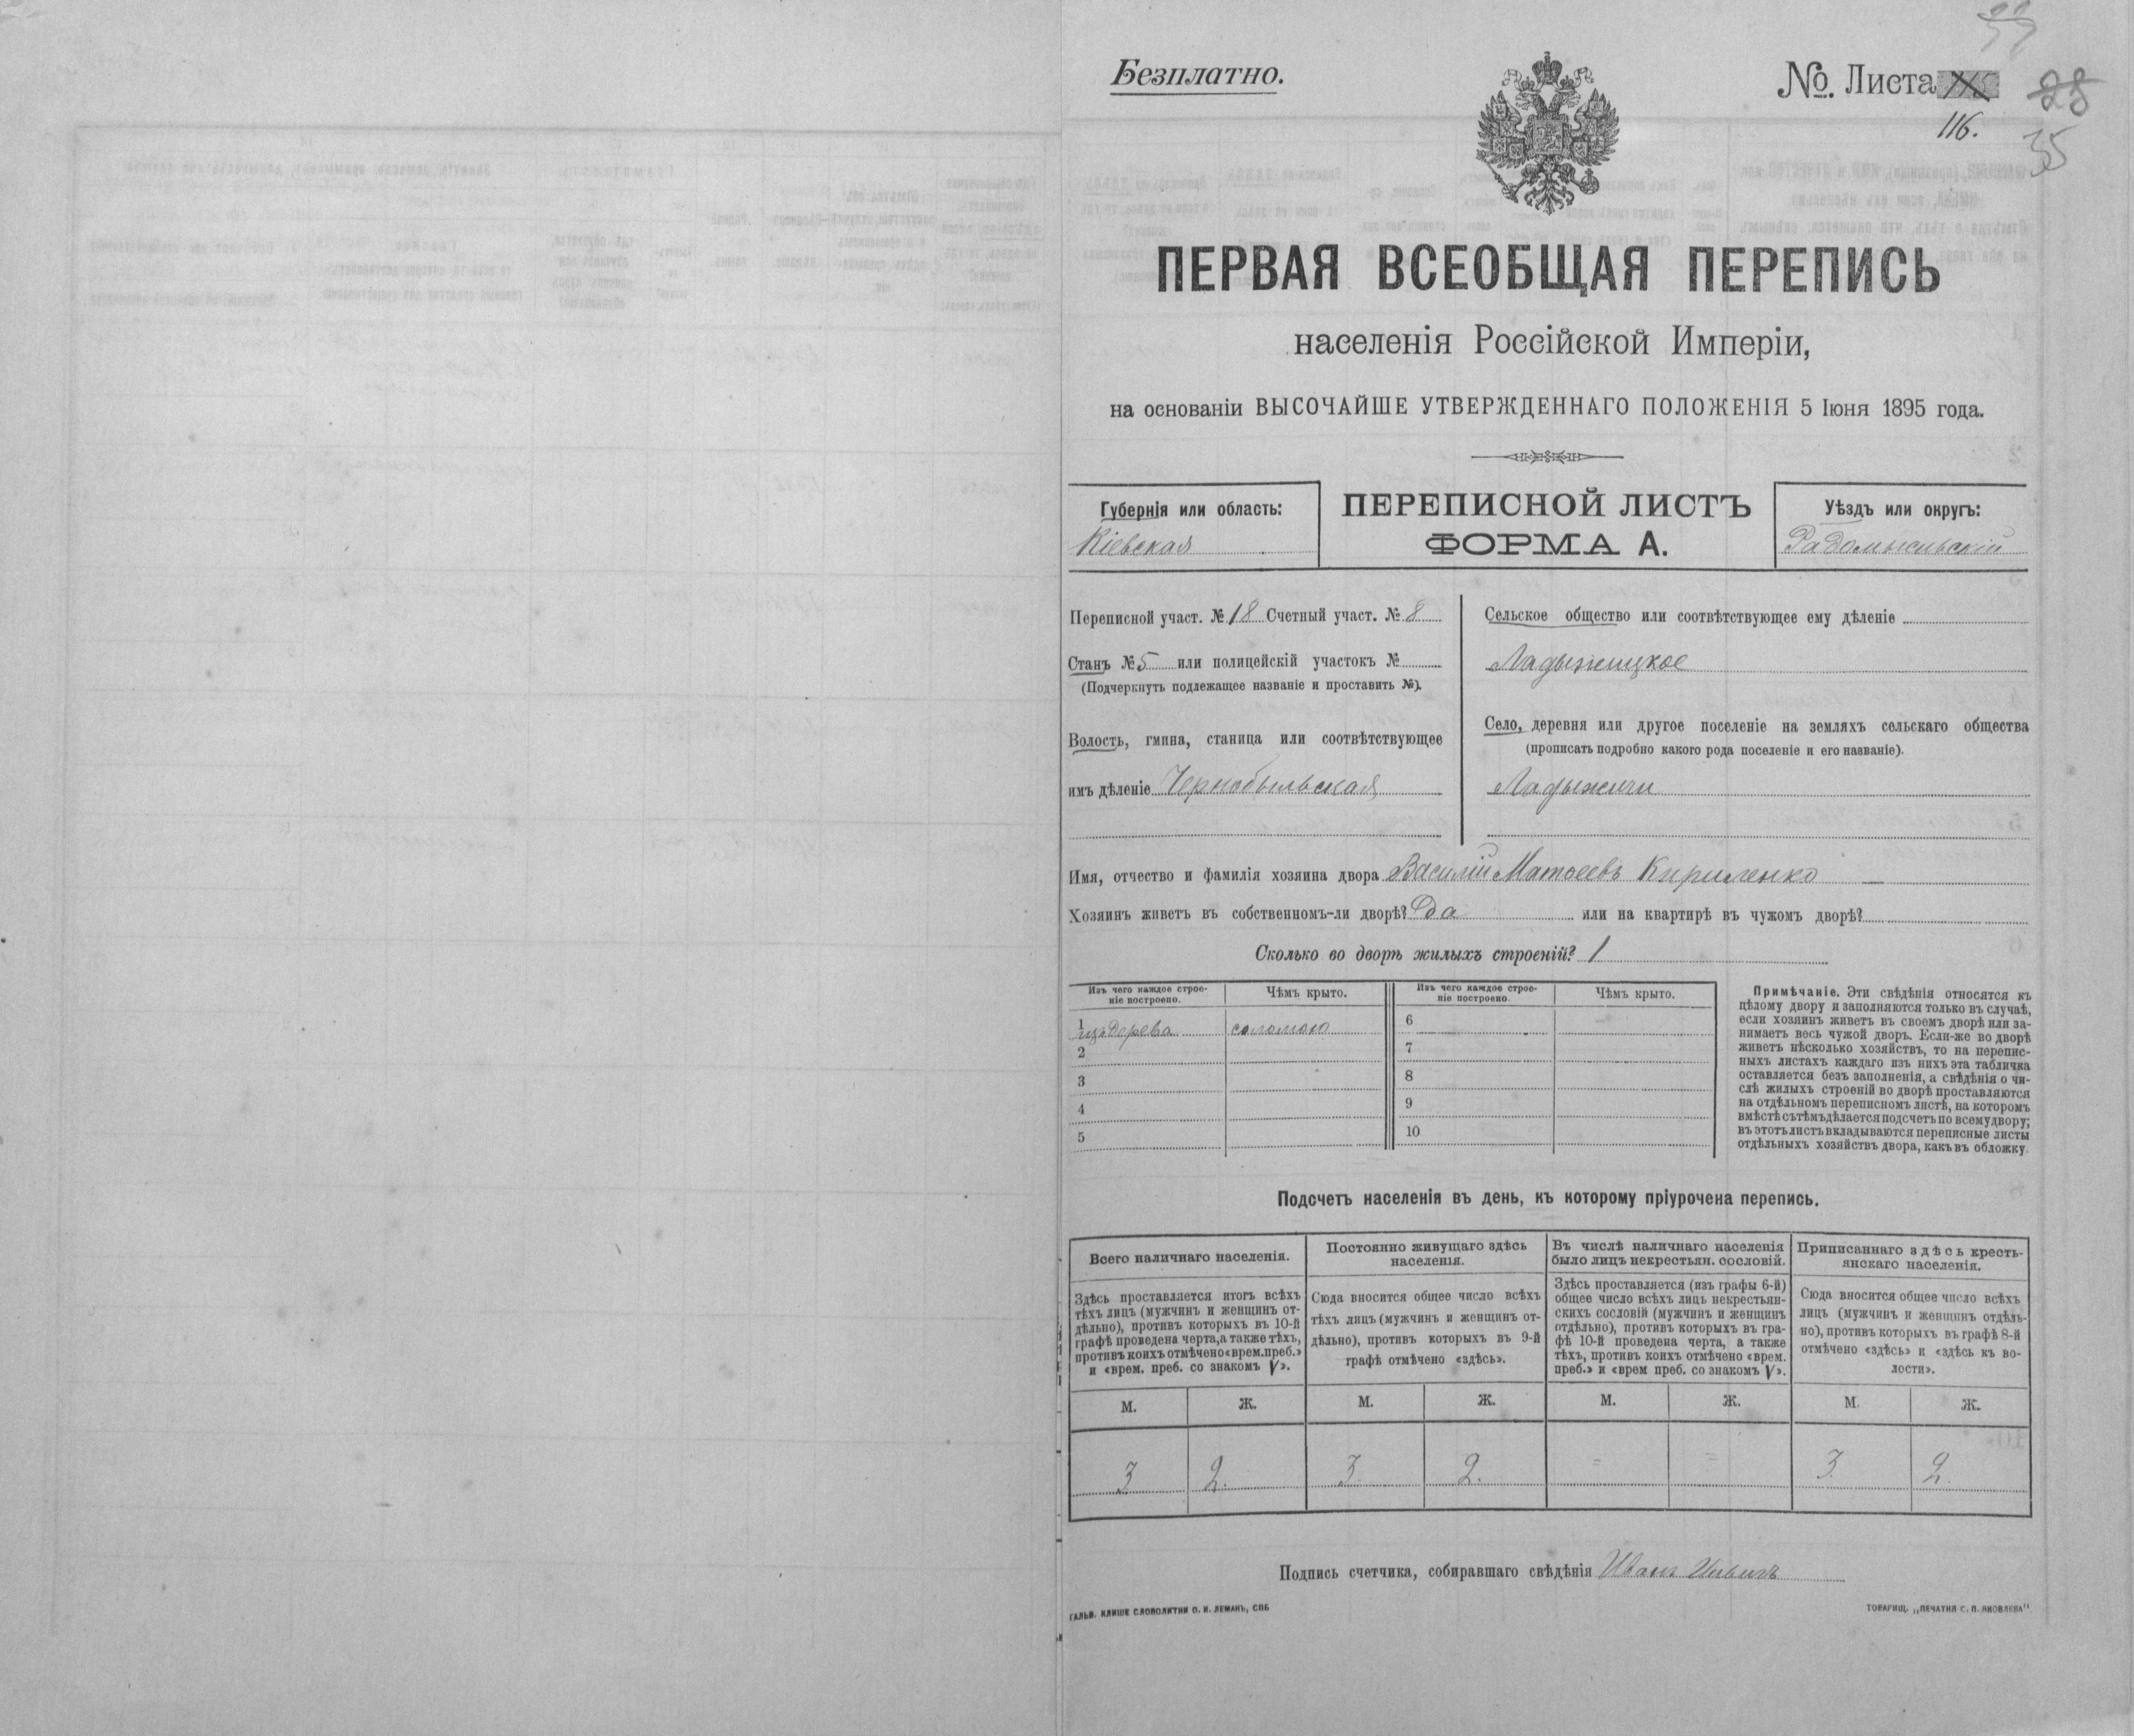 Безплатно.
№. Листа
116.
28
35
ПЕРВАЯ ВСЕОБЩАЯ ПЕРЕПИСЬ
населенія Россійской Имперіи,
на основаніи ВЫСОЧАЙШЕ УТВЕРЖДЕННАГО ПОЛОЖЕНІЯ 5 Іюня 1895 года.
Губернія или область:
Кіевская
ПЕРЕПИСНОЙ ЛИСТЪ
ФОРМА А.
Уѣздъ или округъ:
Радомысльскій
Переписной участ. № 18 Счетный участ. № 8
Станъ № 5 или полицейскій участокъ №
(Подчеркнуть подлежащее названіе и проставить №).
Волость, гмина, станица или соотвѣтствующее
имъ дѣленіе Чернобыльская
Сельское общество или соотвѣтствующее ему дѣленіе
Ладыжицкое
Село, деревня или другое поселеніе на земляхъ сельскаго общества
(прописать подробно какого рода поселеніе и его названіе).
Ладыжичи
Имя, отчество и фамилія хозяина двора Василій Матвеевъ Кириленко
Хозяинъ живетъ въ собственномъ-ли дворѣ? Да или на квартирѣ въ чужомъ дворѣ?
Сколько во дворѣ жилыхъ строеній? 1
Изъ чего каждое строе-
ніе построено.
Чѣмъ крыто.
Изъ чего каждое строе-
ніе построено.
Чѣмъ крыто.
1 изъ дерева соломою
2
3
4
5
6
7
8
9
10
Примѣчаніе. Эти свѣдѣнія относятся къ
цѣлому двору и заполняются только въ случаѣ,
если хозяинъ живетъ въ своемъ дворѣ или за-
нимаетъ весь чужой дворъ. Если-же во дворѣ
живетъ нѣсколько хозяйствъ, то на перепис-
ныхъ листахъ каждаго изъ нихъ эта табличка
оставляется безъ заполненія, а свѣдѣнія о чи-
слѣ жилыхъ строеній во дворѣ проставляются
на отдѣльномъ переписномъ листѣ, на которомъ
вмѣстѣ съ тѣмъ дѣлается подсчетъ по всему двору;
въ этотъ листъ вкладываются переписные листы
отдѣльныхъ хозяйствъ двора, какъ въ обложку.
Подсчетъ населенія въ день, къ которому пріурочена перепись.
Всего наличнаго населенія.
Здѣсь проставляется итогъ всѣхъ
тѣхъ лицъ (мужчинъ и женщинъ от-
дѣльно), противъ которыхъ въ 10-й
графѣ проведена черта, а также тѣхъ,
противъ коихъ отмѣчено «врем. преб.»
и «врем. преб. со знакомъ V».
Постоянно живущаго здѣсь
населенія.
Сюда вносится общее число всѣхъ
тѣхъ лицъ (мужчинъ и женщинъ от-
дѣльно), противъ которыхъ въ 9-й
графѣ отмѣчено «здѣсь».
Въ числѣ наличнаго населенія
было лицъ некрестьян. сословій.
Здѣсь проставляется (изъ графы 6-й)
общее число всѣхъ лицъ некрестьян-
скихъ сословій (мужчинъ и женщинъ
отдѣльно), противъ которыхъ въ гра-
фѣ 10-й проведена черта, а также
тѣхъ, противъ коихъ отмѣчено «врем.
преб.» и «врем преб. со знакомъ V».
Приписаннаго здѣсь кресть-
янскаго населенія.
Сюда вносится общее число всѣхъ
лицъ (мужчинъ и женщинъ отдѣль-
но), противъ которыхъ въ графѣ 8-й
отмѣчено «здѣсь» и «здѣсь къ во-
лости».
М. Ж. М. Ж. М. Ж. М. Ж.
3 2. 3. 2. = = 3. 2.
Подпись счетчика, собиравшаго свѣдѣнія Иванъ
ГАЛЬВ. КЛИШЕ СЛОВОЛИТНИ О. И. ЛЕМАНЪ, СПБ
ТОВАРИЩ. „ПЕЧАТНЯ С. П. ЯКОВЛЕВА“.